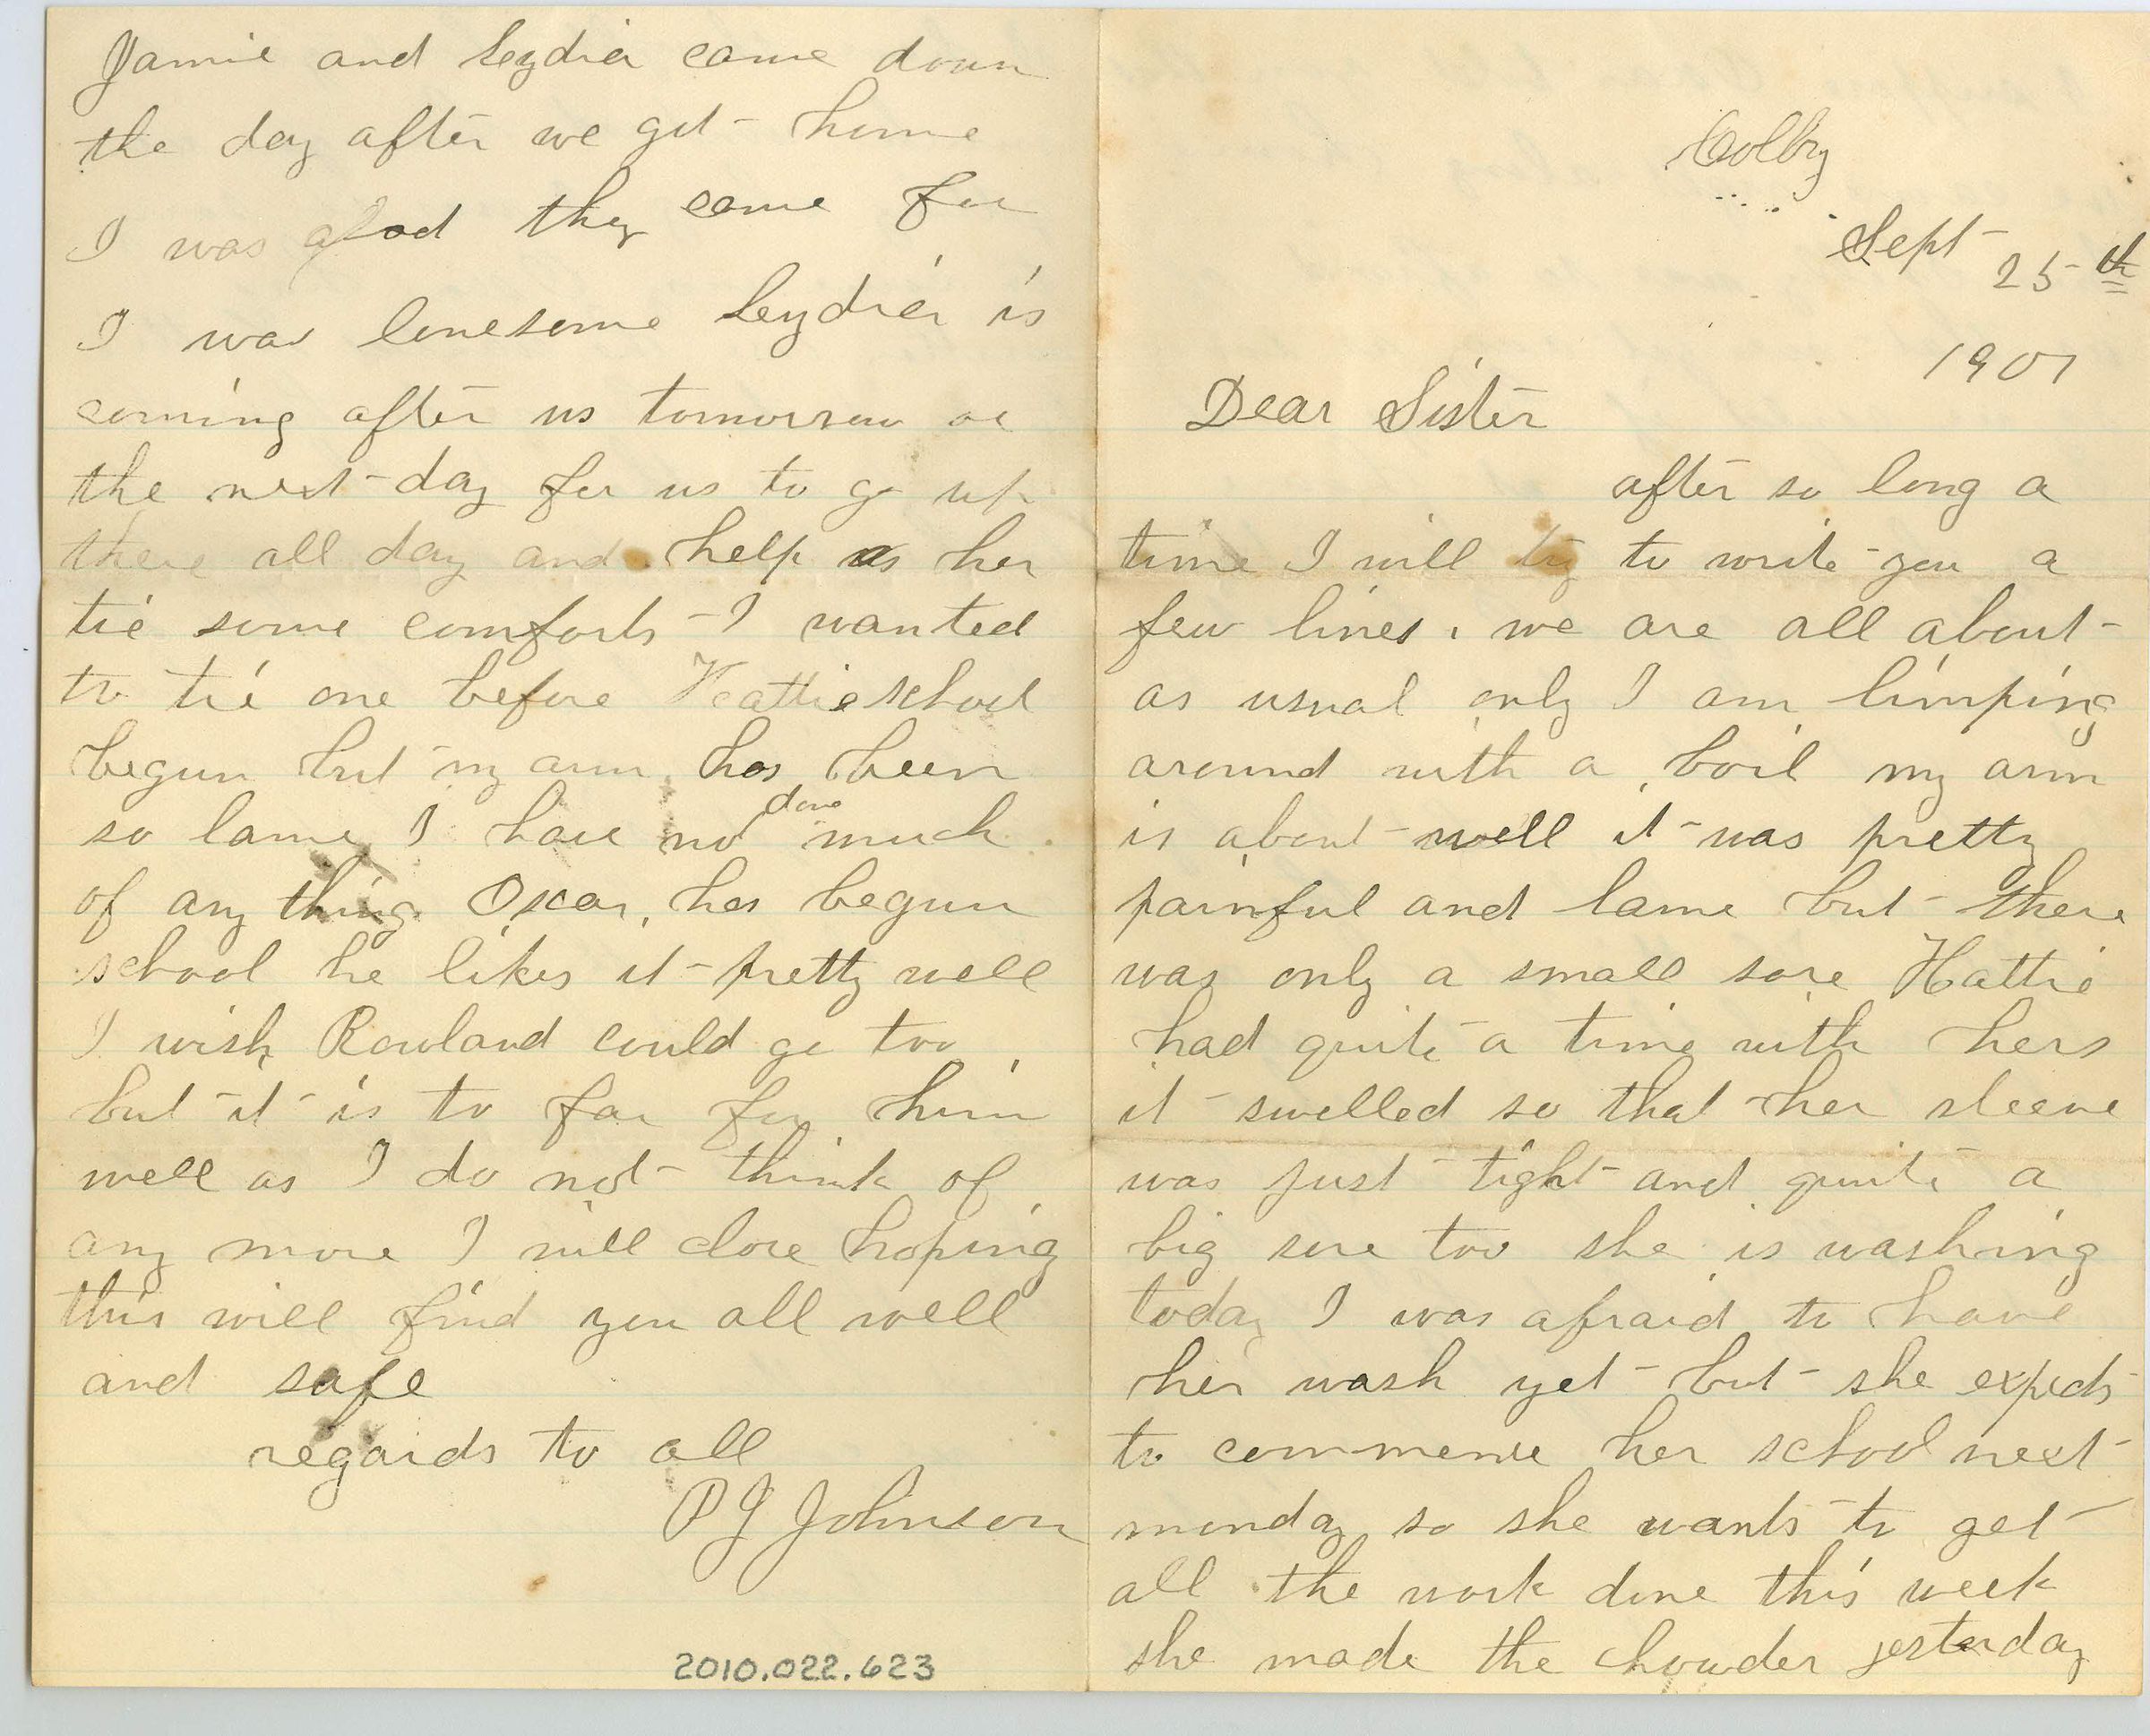 Colby
Sept 25th
1901
Dear Sister
after so long a
time I will try to write you a
few lines. we are all about
as usual only I am limping
around with a boil my arm
is about well it was pretty
painful and lame but there
was only a small sore Hattie
had quite a time with hers
it swelled so that her sleeve
was just tight and quite a
big sore too she is washing
today I was afraid to have
her wash yet but she expects
to commence her school next
monday so she wants to get
all the work done this week
she made the chowder yesterday
Jamie and Leydia came down
the day after we got home
I was glad they came for
I was lonesome Leydia is
coming after us tomorrow or
the next day for us to go up
there all day and help her
tie some comforts I wanted
to tie one before Hattie school
begun but my arm has been
so lame I have no done much
of any thing Oscar, has begun
school he likes it pretty well
I wish Rowland could go too
but it is to far for him
well as I do not think of
any more I will close hoping
this will find you all well
and safe
regards to all
P J Johnson
2010.022.623